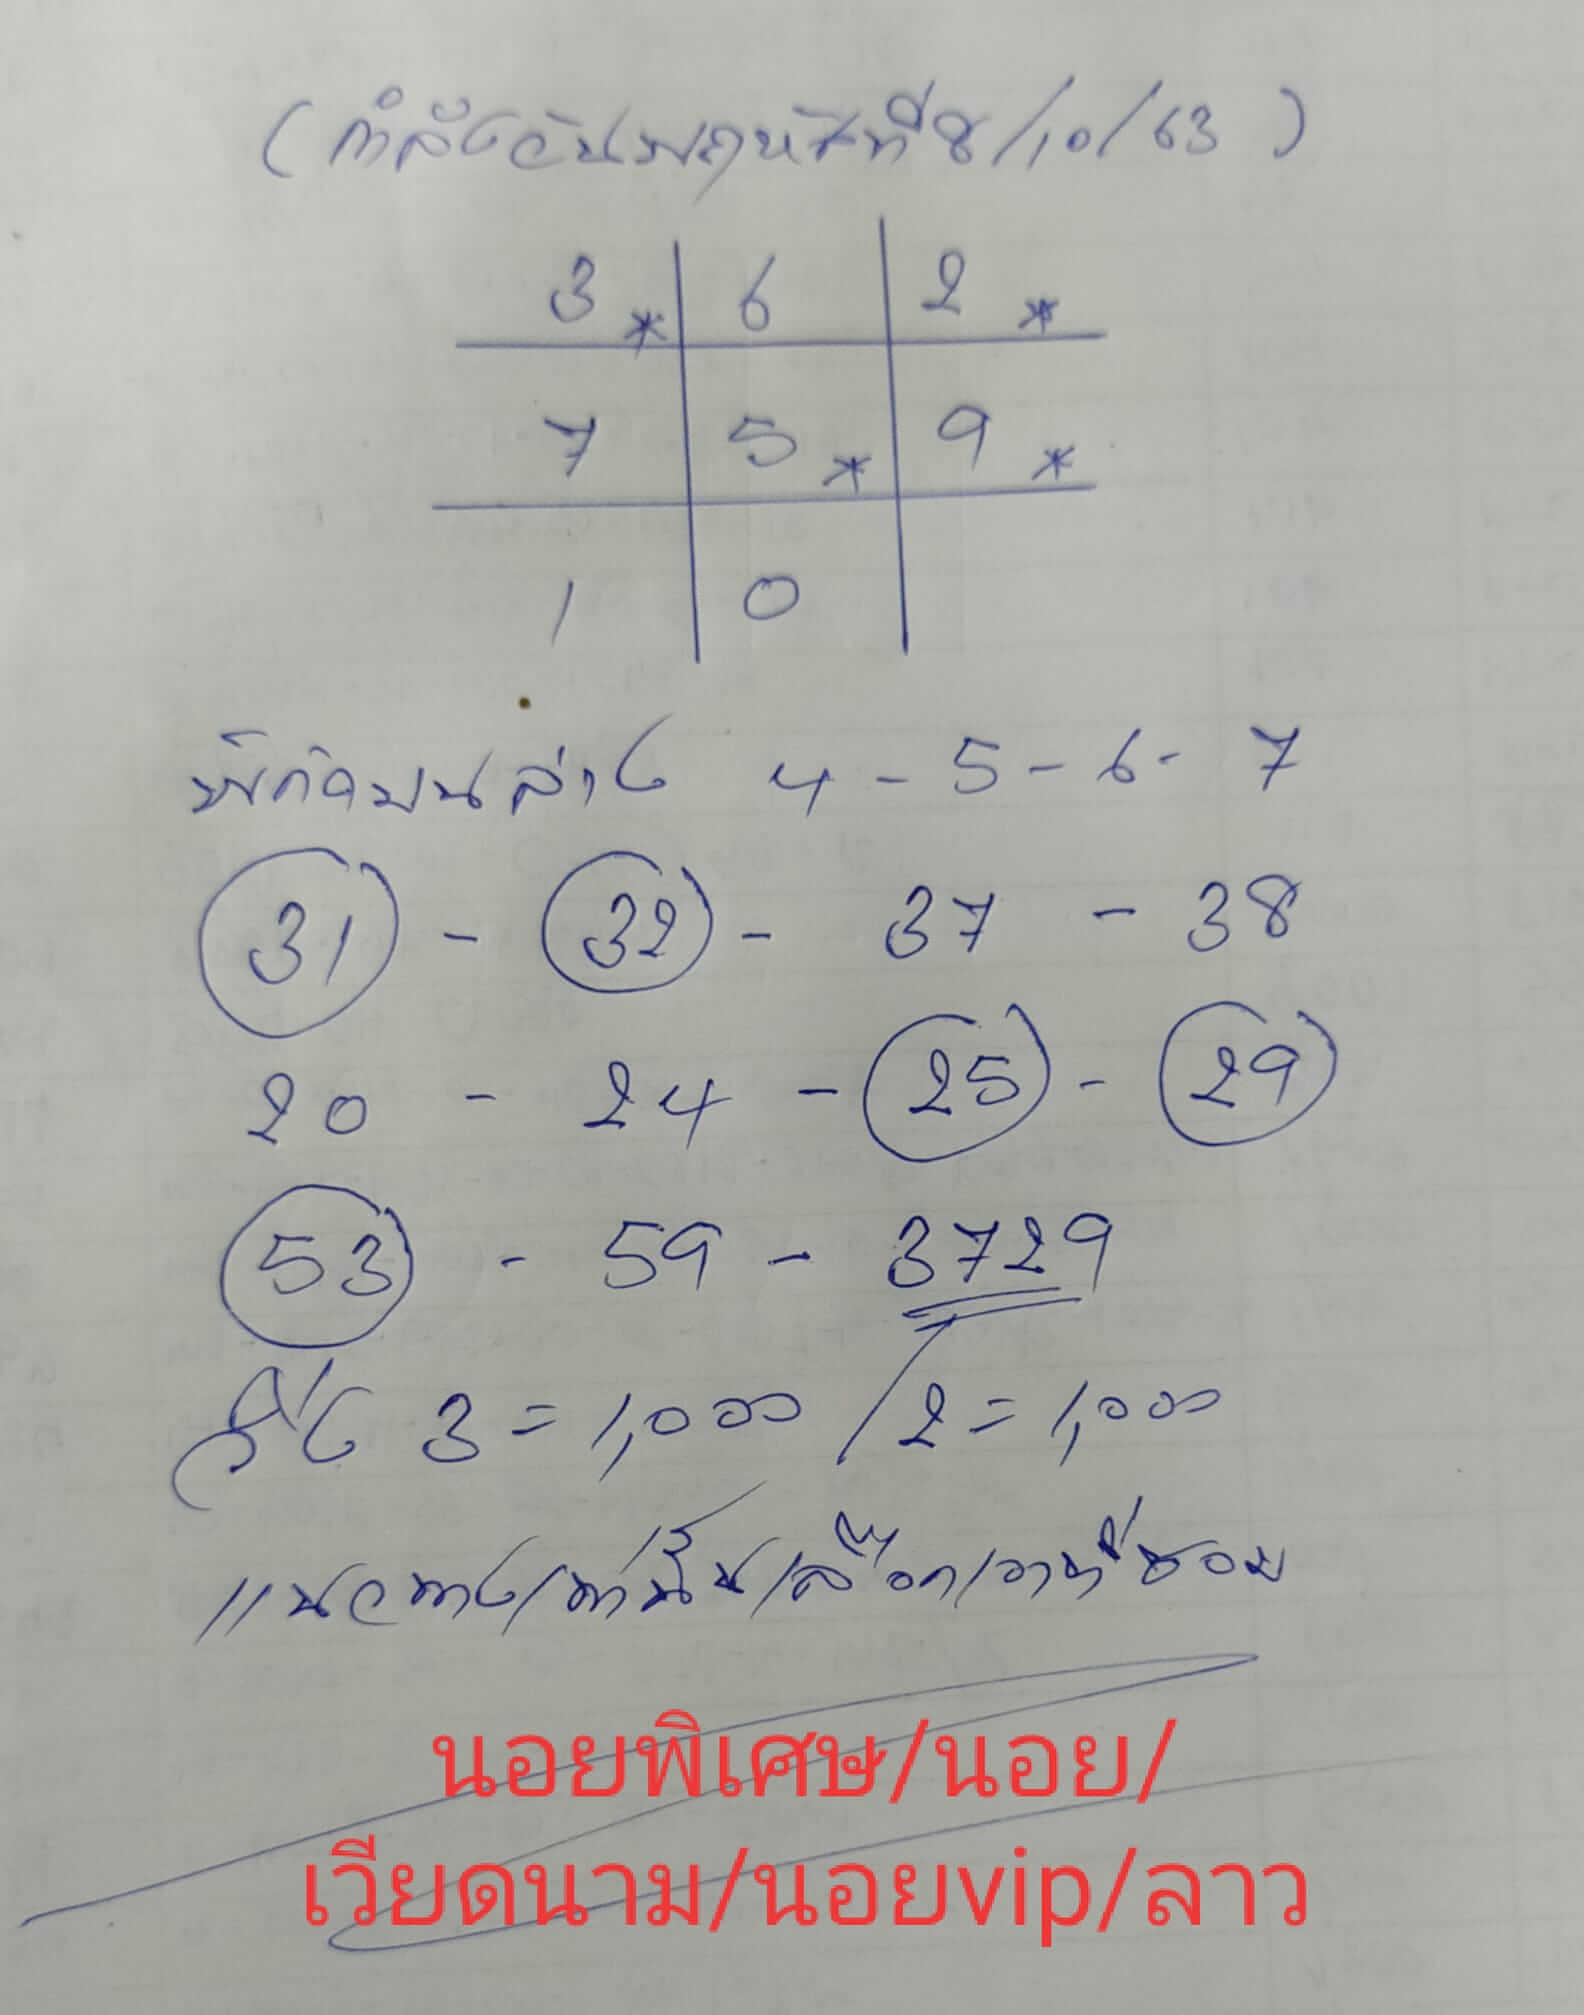 (กำลังวันพฤหัสที่8/10/63)
3* 6 2*
7 5* 9*
1 0
พิกัดบนล่าง 4-5-6-7
31 - 32 - 37 - 38
20 - 24 - 25 - 29
53 - 59 - 3729
วิ่ง 3 = 1,000 / 2 = 1,000
แนวทางเท่านั้นเลือกเอาที่ชอบ
นอยพิเศษ/นอย/
เวียดนาม/นอยvip/ลาว